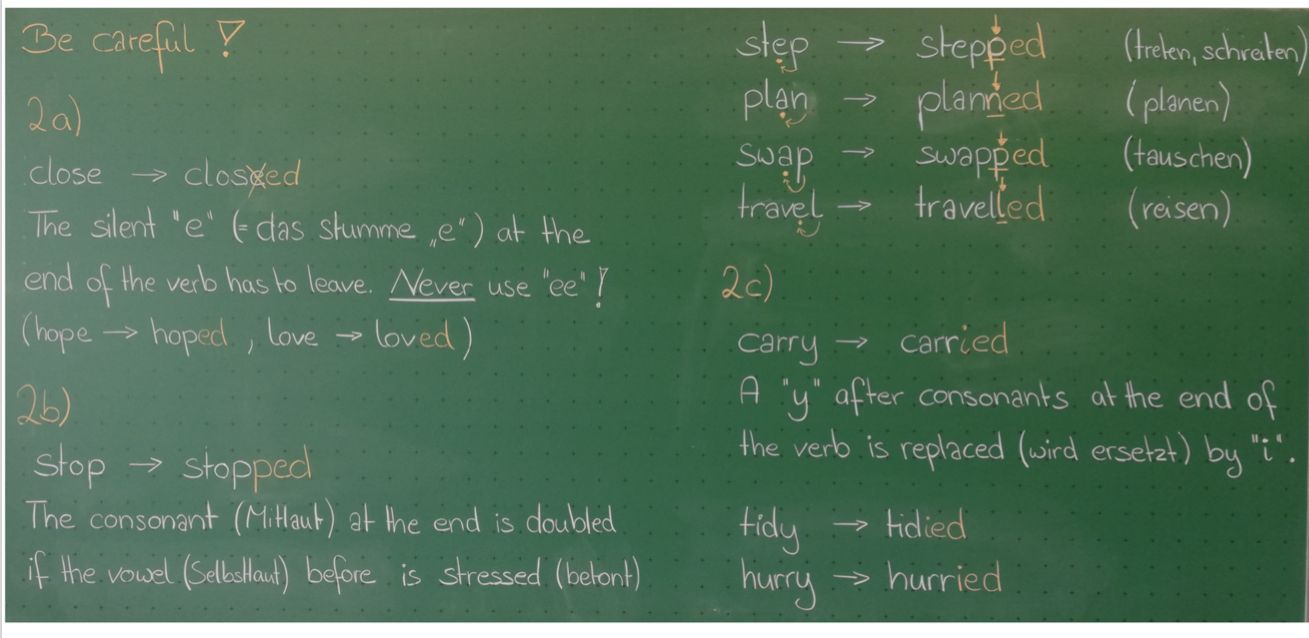 Be careful!
2a)
close → closeed
The silent "e" (= das stumme „e") at the
end of the verb has to leave. Never use "ee"!
(hope → hoped, love → loved)
2b)
stop → stopped
The consonant (Mitlaut) at the end is doubled
if the vowel (Selbstlaut) before is stressed (betont)
step → stepped (treten, schreiten)
plan → planned (planen)
swap → swapped (tauschen)
travel → travelled (reisen)
2c)
carry → carried
A "y" after consonants at the end of
the verb is replaced (wird ersetzt) by "i".
tidy → tidied
hurry → hurried